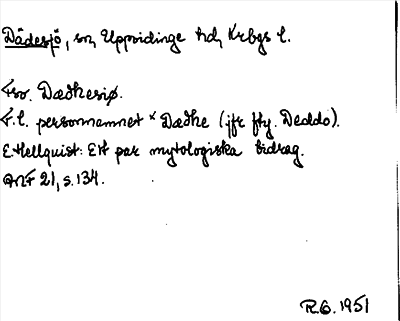 Dädesjö, sn, Uppvidinge hd, Krbgs l.
Fsv. Dædhesiø.
F.l. personnamnet *Dædhe (jfr fty. Deddo).
E. Hellquist: Ett par mytologiska bidrag.
ANF 21, s. 134.
R.G. 1951